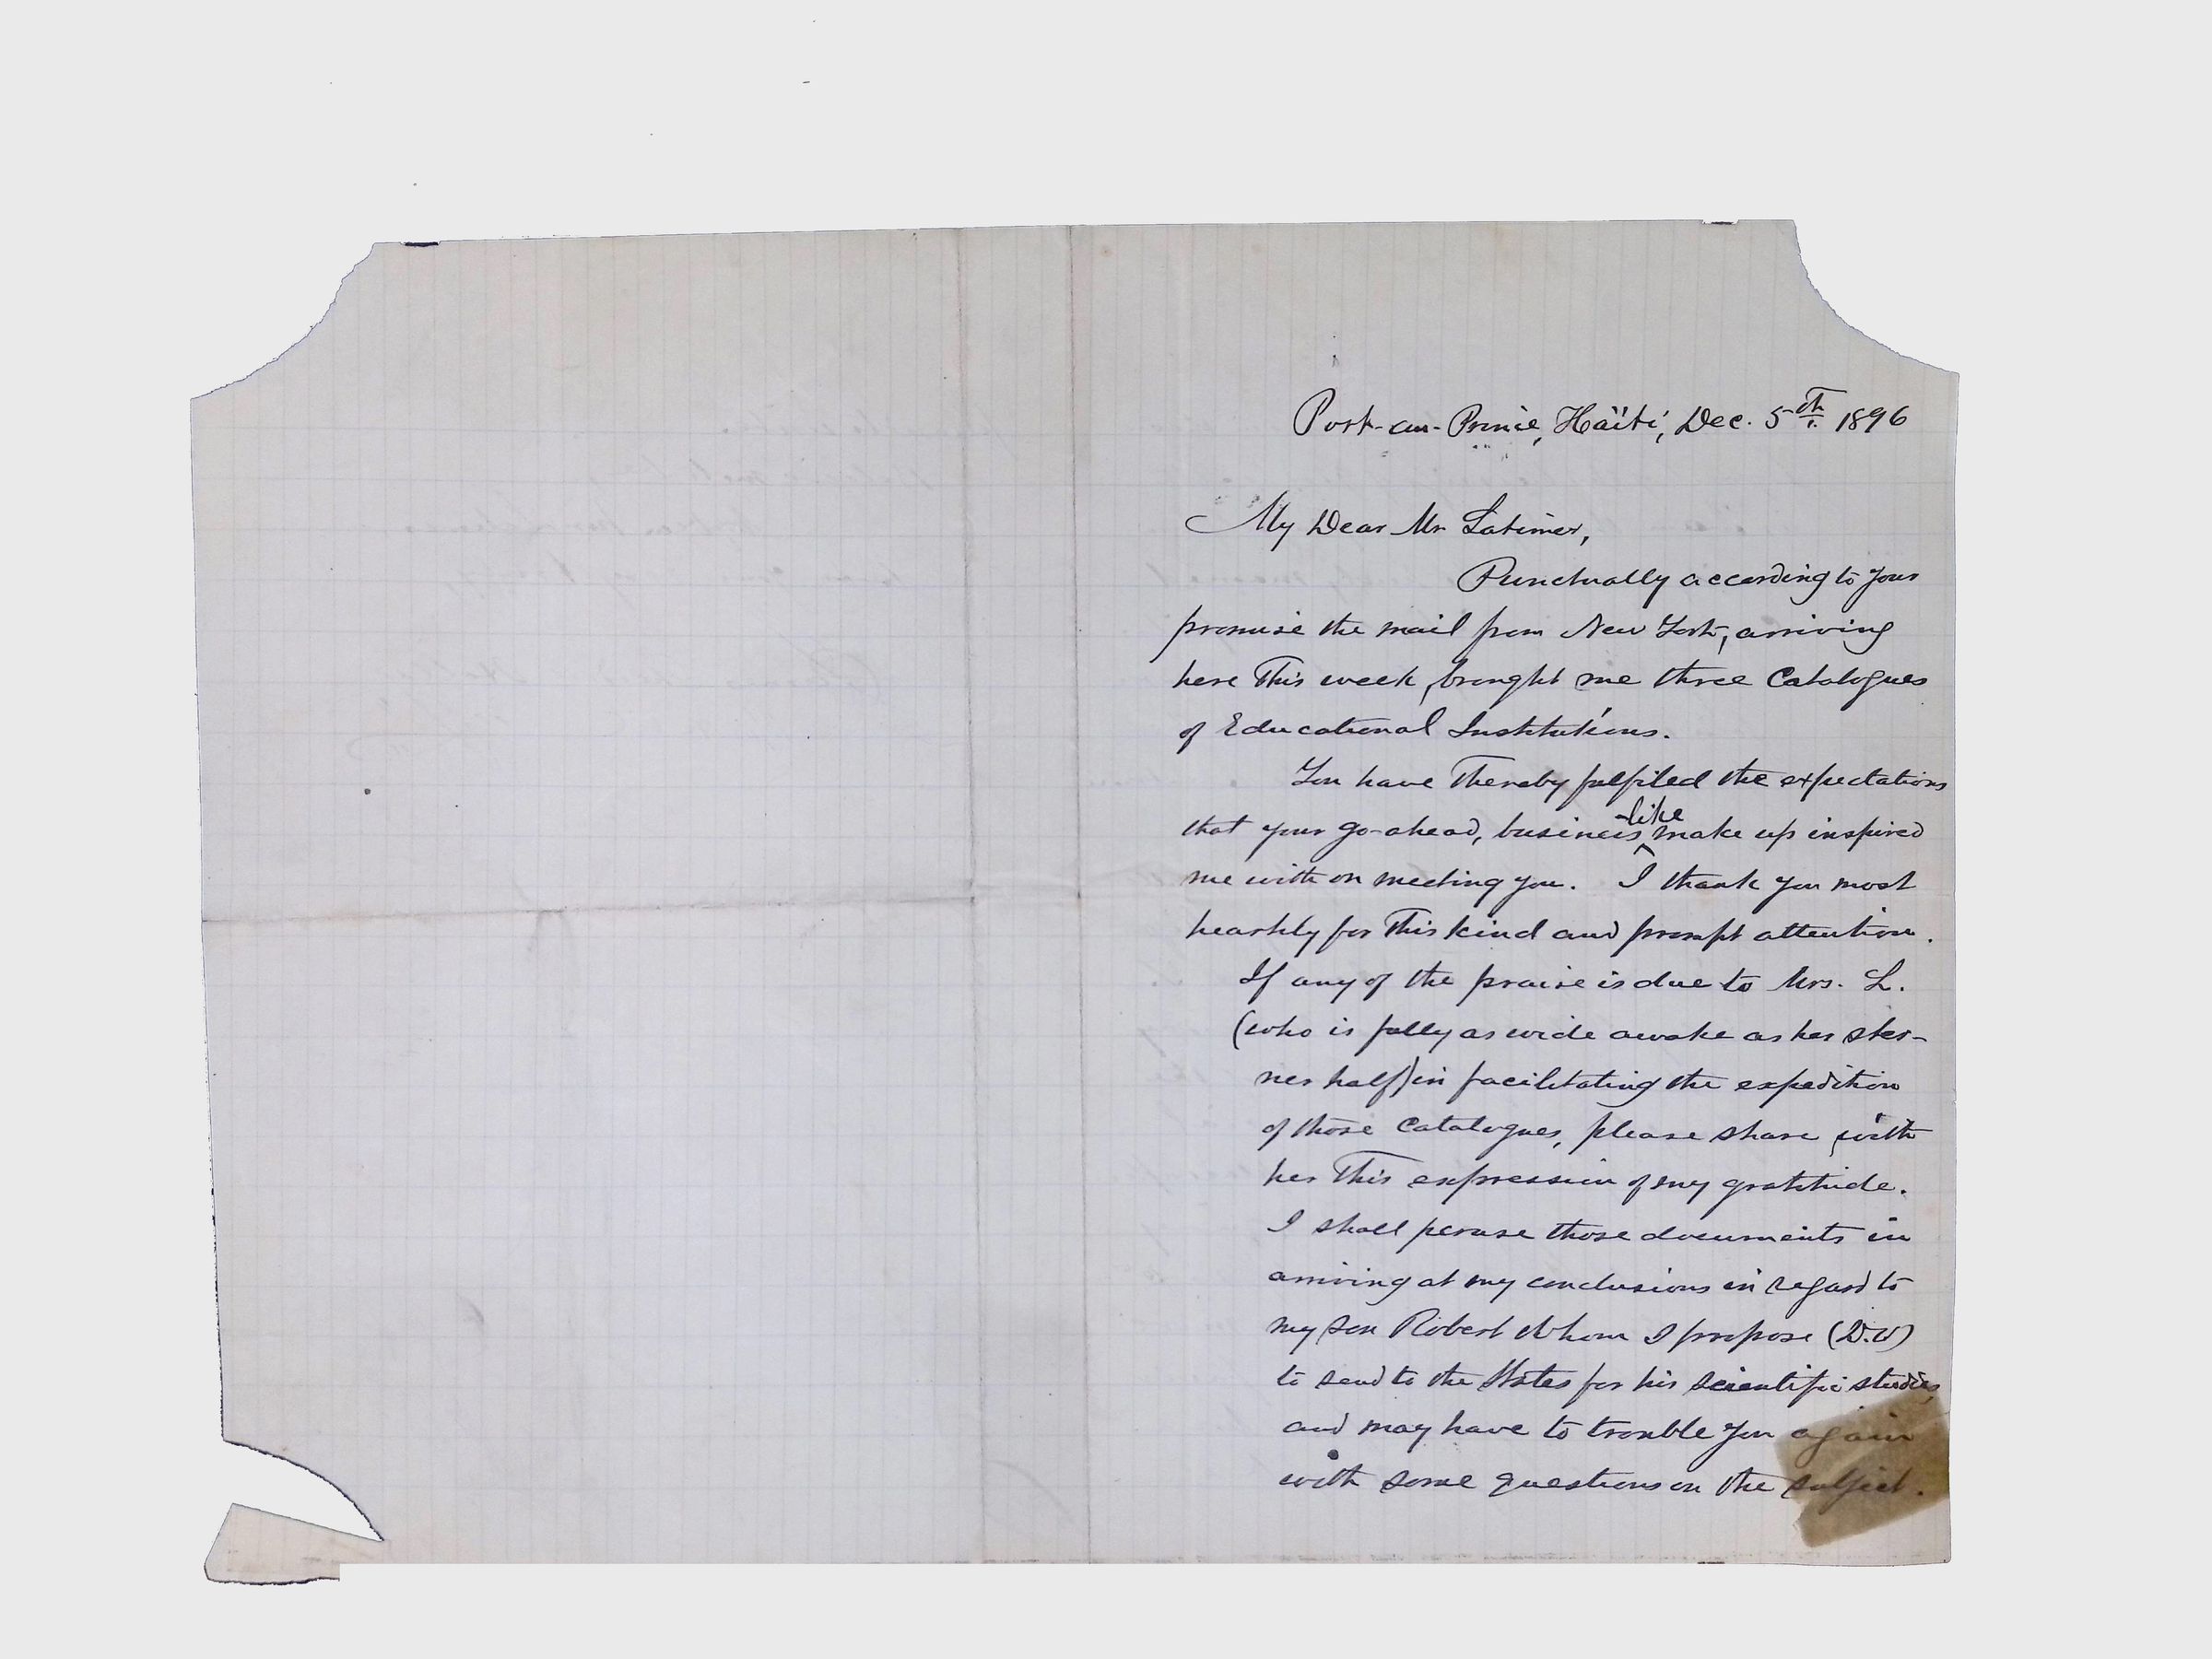 Port-au-Prince, Haïti, Dec. 5th 1896
My Dear Mr Latimer,
Punctually according to your
promise the mail from New York, arriving
here this week, brought me three Catalogues
of Educational Institutions.
You have thereby fulfiled the expectations
that your go-ahead, business-like make up inspired
me with on meeting you. I thank you most
heartily for this kind and prompt attention.
If any of the praise is due to Mrs. L.
(who is fully as wide awake as her ster-
ner half) in facilitating the expedition
of those Catalogues, please share with
her this expression of my gratitude.
I shall peruse those documents in
arriving at my conclusions in regard to
my son Robert whom I propose (D.V)
to send to the States for his scientific studies,
and may have to trouble you again
with some questions on the subject.